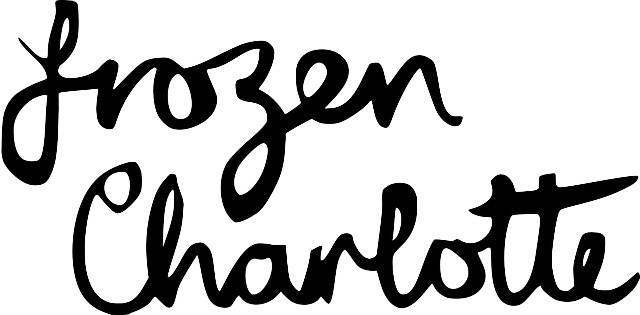 frozen
Charlotte